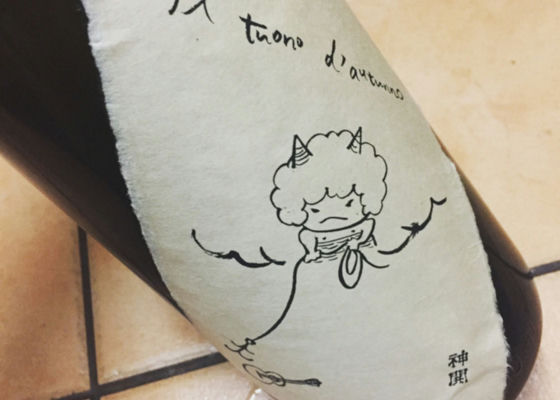 tuono d'autunno
神開